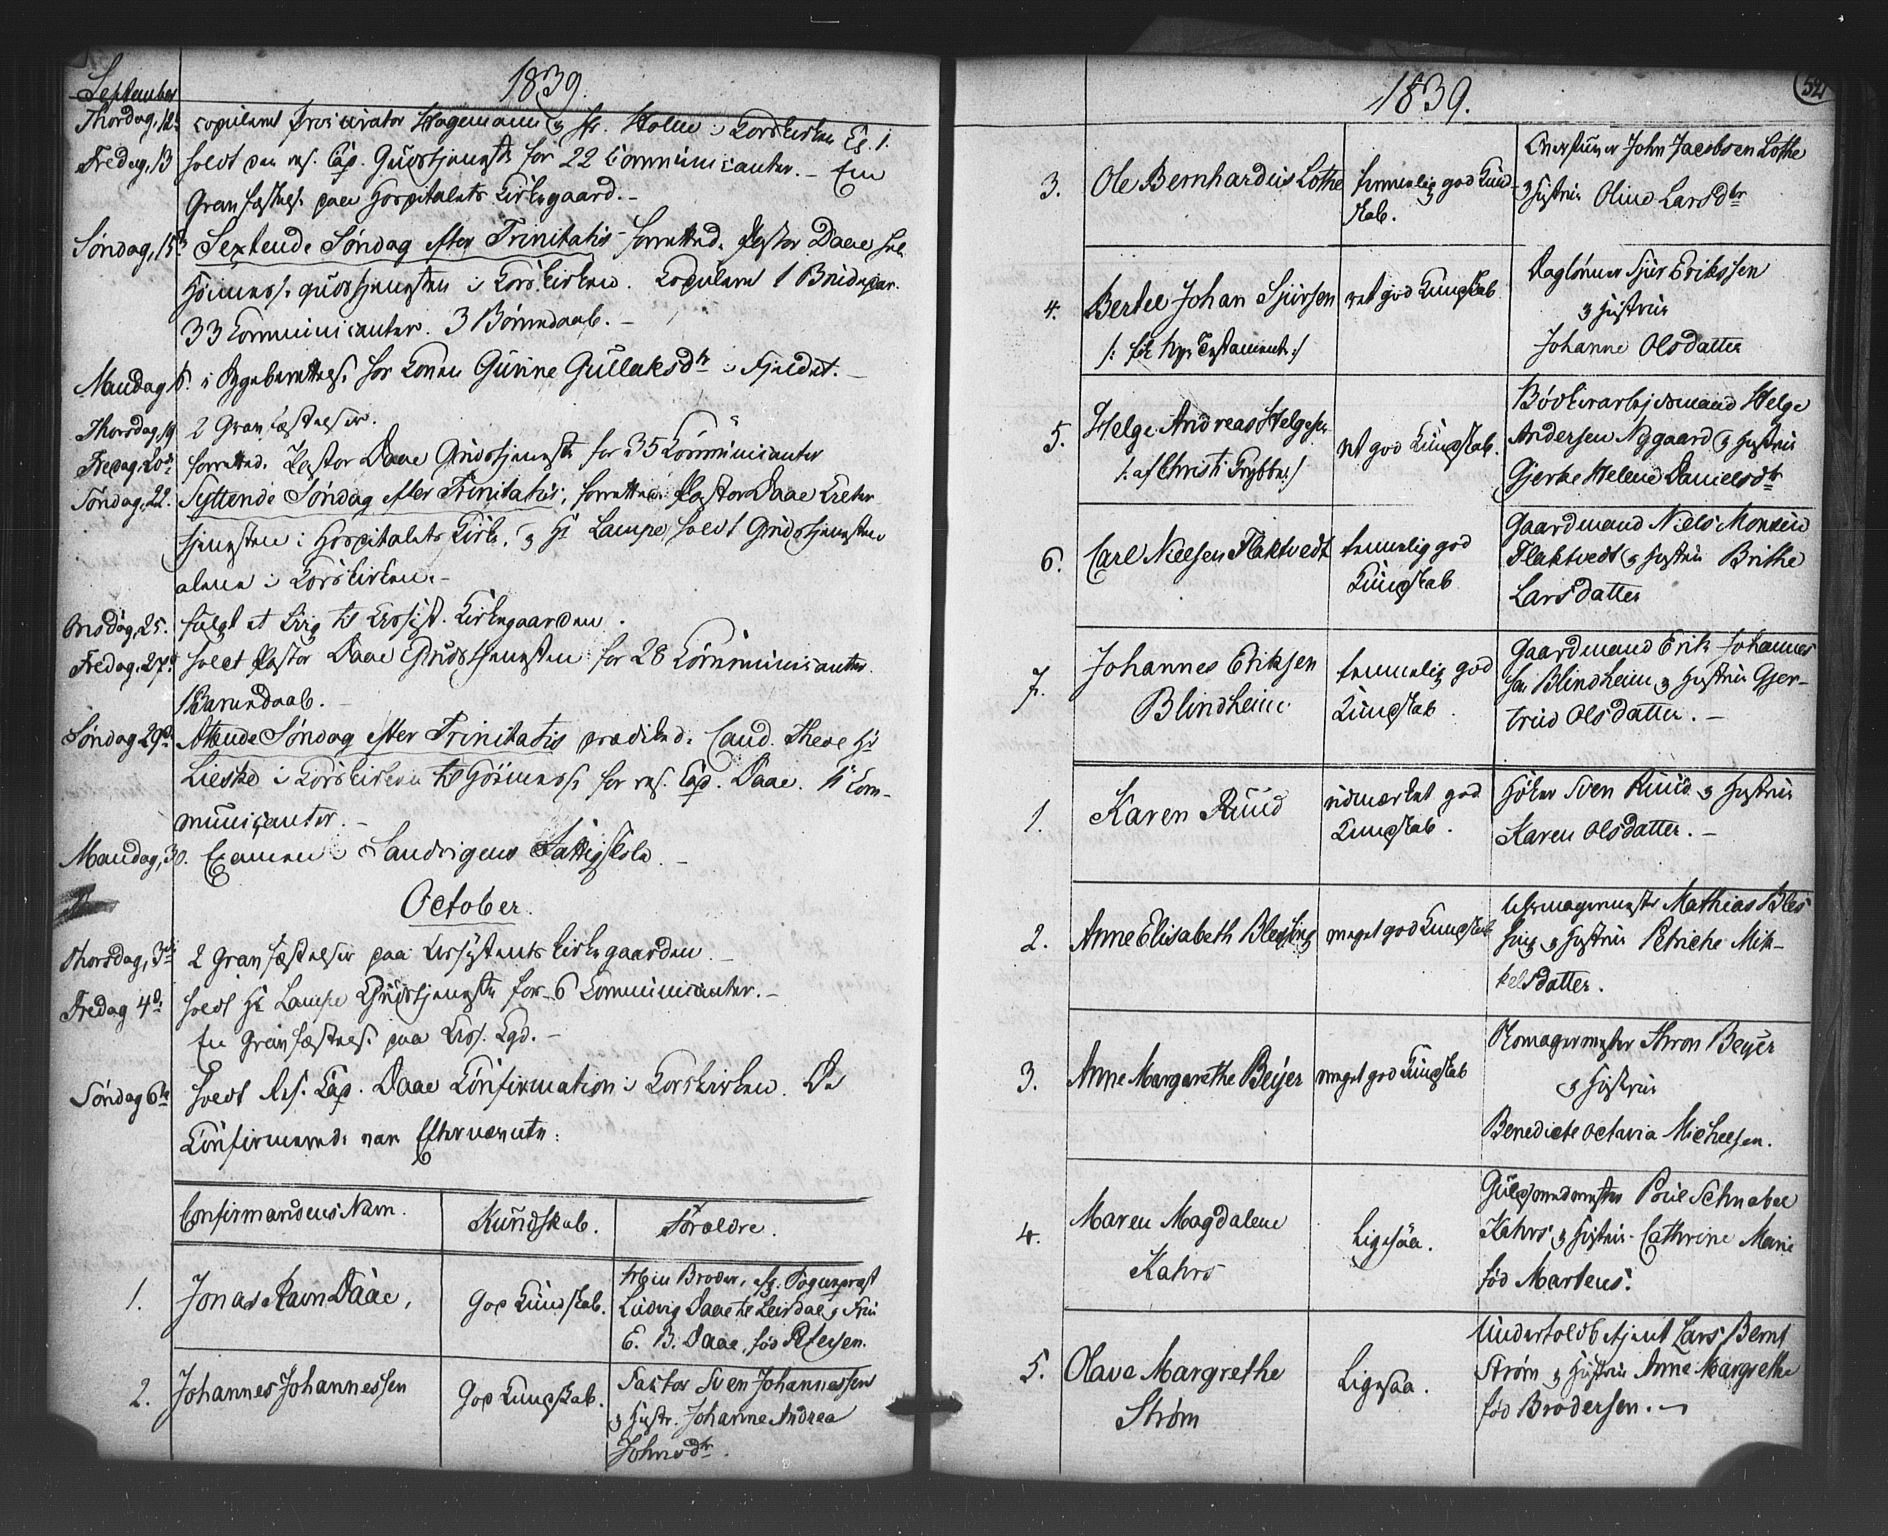 September
1839.
Thordag, 12. copuleret Procurator Hagemann Korskirken
Fredag, 13 holdt res. Cap. Gudstjeneste for 22 Communicanter. – En
Gravfæstelse paa Hospitalets Kirkegaard. –
Søndag, 15 Sextende Søndag efter Trinitatis forrettede Pastor Daae
Høimesse gudstjenesten i Korskirken. Copuleret 1 Brudepar.
33 Communicanter. 3 Børnedaab. –
Mandag, 16. Sygeberettelse for Konen Gunne Gullaksdtr
Thorsdag, 19 2 Gravfæstelser.
Fredag, 20de forrettede Pastor Daae Gudstjeneste for 35 Communicanter
Søndag, 22. Syttende Søndag efter Trinitatis, forrettede Pastor Daae
tjenesten i Hospitalets Kirke, Hr Lampe holdt Gudstjenesten
alene i Korskirken. –
Onsdag, 25. fulgt et Liig til Assist. Kirkegaarden.
Fredag, 27de holdt Pastor Daae Gudstjenesten for 28 Communicanter.
1 Barnedaab. –
Søndag 29de Attende Søndag efter Trinitatis prædikede Cand. Theol Hr
i Korskirken til Høimesse for res. Cap. Daae. 11 Com-
municanter. –
Mandag, 30. Examen i Sandvigens Fattigskole. –
October.
Thorsdag, 3die 2 Gravfæstelser paa Assistents Kirkegaarden. –
Fredag 4de holdt Hr Lampe Gudstjeneste for 6 Communicanter. –
En Gravfæstelse paa Ass. Kgd. –
Søndag 6te holdt Res. Cap. Daae Confirmation i Korskirken. De
Confirmerede vare Efternævnte:
Confirmandens Navn. Kundskab. Forældre.
1. Jonas Ravn Daae, God Kundskab. min Broder, Sogneprest
Ludvig Daae til Leirdal & Fru
E. B. Daae, fød Petersen.
2. Johannes Johannessen God Kundskab. Factor Sven Johannessen
& Hustr. Johanne Andrea
Johnsdtr.
52
1839.
3. Ole Bernhardus Lothe temmelig god Kund- John Jacobsen Lothe
skab. & Hustrue Oline Larsdtr
4. Bertel Johan Sjursen ret god Kundskab Daglønner Sjur Erikssen
& Hustrue
/: fik Nye Testament :/ Johanne Olsdatter
5. Helge Andreas Helgesen ret god Kundskab. Bødkerarbeidsmand Helge
Andersen Nygaard & Hustrue
/: af Christi Krybbe :/ Gjerke Helene Danielsdtr
6. Carl Nielsen Flaktvedt temmelig god Gaardmand Niels Monsen
Kundskab Flaktvedt & Hustrue Brithe
Larsdatter
7. Johannes Eriksen temmelig god Gaardmand Erik Johannes
Blindheim Kundskab. sen Blindheim & Hustrue Gjer-
trud Olsdatter. –
1. Karen Ruud udmærket god Høker Sven Ruud & Hustrue
Kundskab. Karen Olsdatter. –
2. Anne Elisabeth Blessing meget god Kundskab Uhrmagermester Mathias Bles
sing & Hustrue Petriche Mik-
kelsdatter.
3. Anne Margarethe Beyer meget god Kundskab Skomagermester Beyer
& Hustrue
Benedicte Octavia Michelsen.
4. Maren Magdalene Ligesaa. Guldsmedmester Poul Schnabel
Kahrs Kahrs & Hustrue Cathrine Marie
fød Martens.
5. Olava Margrethe Ligesaa. Undertoldbetjent Lars Bernt
Strøm Strøm & Hustrue Anne Margrethe
fød Brodersen. –